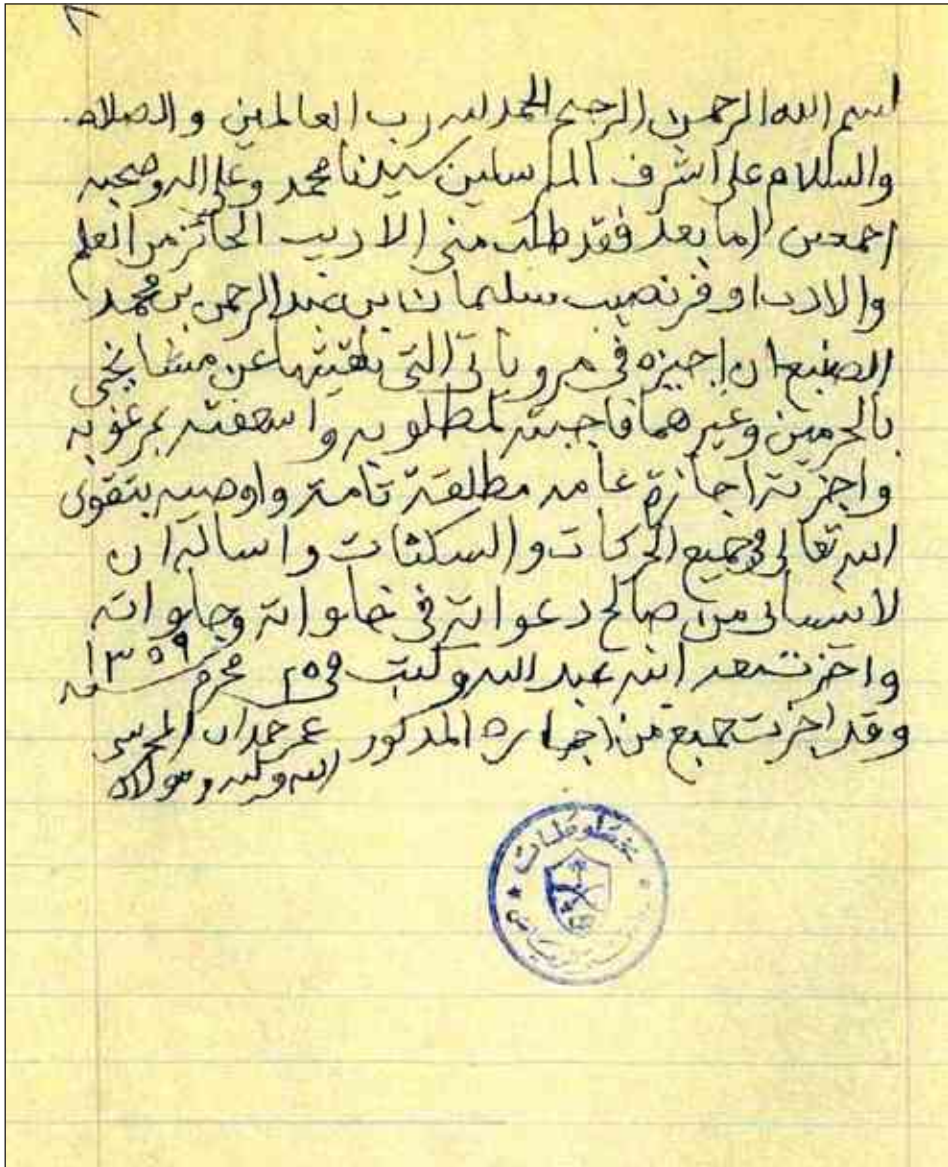 ٨
بسم الله الرحمن الرحيم الحمد لله رب العالمين والصلاه
والسلام على اشرف المرسلين سيدنا محمد وعلى اله وصحبه
اجمعين اما بعد فقد طلب مني الاديب الحائز من العلم
والادب اوفر نصيب سليمان بن عبد الرحمن بن محمد
الصنيع ان اجيزه في مروياتي التي تلقيتها عن مشايخي
بالحرمين وغيرهما فاجبته لمطلوبه واسعفته بمرغوبه
واجزته اجازة عامه مطلقة تامة واوصيه بتقوى
الله تعالى في جميع الحركات والسكنات واساله ان
لا ينساني من صالح دعواته في خلواته وجلواته
واجزت بعد ابنه عبد الله وكتب في ٢٥ محرم سنه ١٣٥٩
وقد اجزت جميع من اجازه المذكور عمر حمدان المحرسي
الله وليه ومولاه
مخطوطات
الرياض